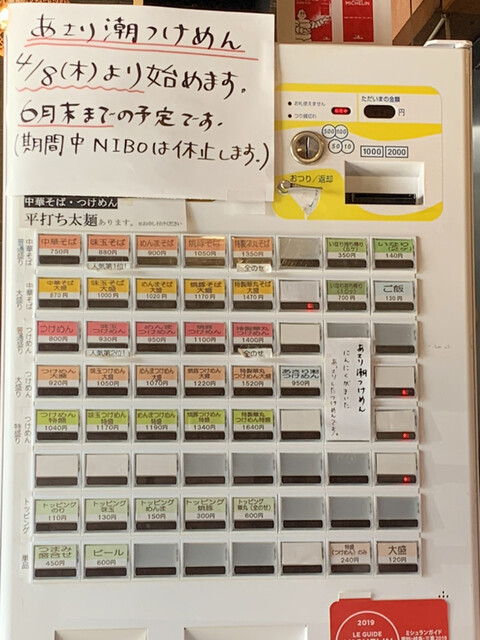 あさり潮つけめん
4/8(木)より始めます。
6月末までの予定です。
(期間中NIBOは休止します。)
MICHELIN
ただいまの金額
500 100
50 10
1000 2000
おつり/返却
中華そば・つけめん
平打ち太麺あります。
中華そば 普通盛り
中華そば 750円
味玉そば 880円
めんまそば 900円
焼豚そば 1050円
特製華丸そば 1350円
350円
140円
人気第1位!
全のせ
中華そば 大盛り
中華そば大盛 870円
味玉そば大盛 1000円
めんまそば大盛 1020円
焼豚そば大盛 1170円
特製華丸そば大盛 1470円
700円
ご飯 130円
つけめん 普通盛り
つけめん 800円
味玉つけめん 930円
めんまつけめん 950円
焼豚つけめん 1100円
特製華丸つけめん 1400円
人気第2位!
全のせ
大盛り
つけめん大盛 920円
味玉つけめん大盛 1050円
めんまつけめん大盛 1070円
焼豚つけめん大盛 1220円
特製華丸つけめん大盛 1520円
あさり潮つけめん 950円
あさり潮つけめん
にんにくがきいた
あさりだしつけめんです。
特盛り
つけめん特盛 1040円
味玉つけめん特盛 1170円
めんまつけめん特盛 1190円
焼豚つけめん特盛 1340円
特製華丸つけめん特盛 1640円
トッピング
トッピング のり 110円
トッピング 味玉 130円
トッピング めんま 150円
トッピング 焼豚 300円
トッピング 華丸(全のせ) 600円
単品
つまみ盛合せ 450円
ビール 600円
特盛(つけめん)のみ 240円
大盛 120円
2019
LE GUIDE
MICHELIN
ミシュランガイド